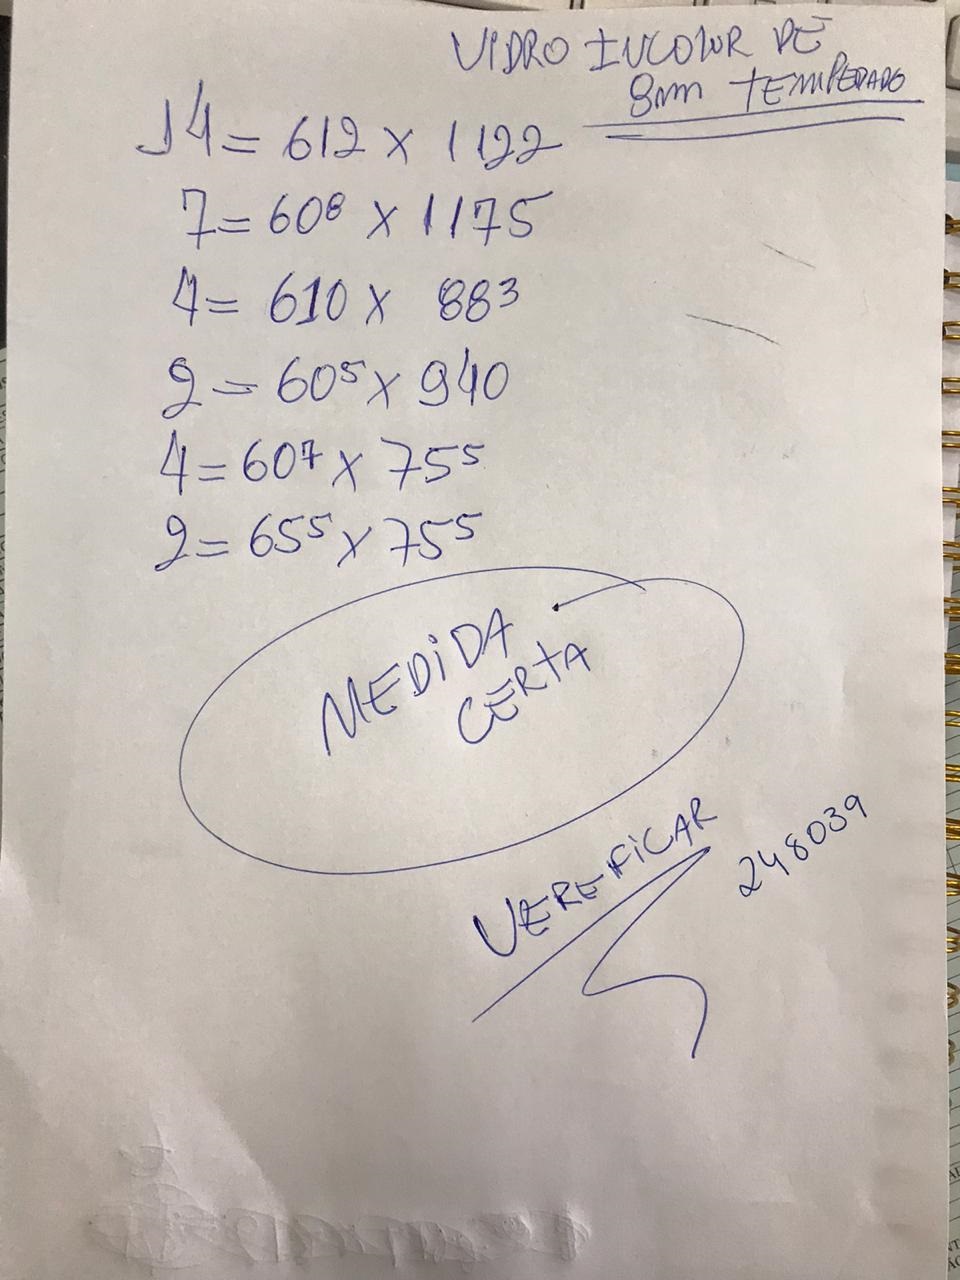 VIDRO INCOLOR DE
8mm TEMPERADO
14 = 612 x 1122
7 = 608 x 1175
4 = 610 x 883
2 = 605 x 940
4 = 607 x 755
2 = 655 x 755
MEDIDA
CERTA
VEREFICAR
248039